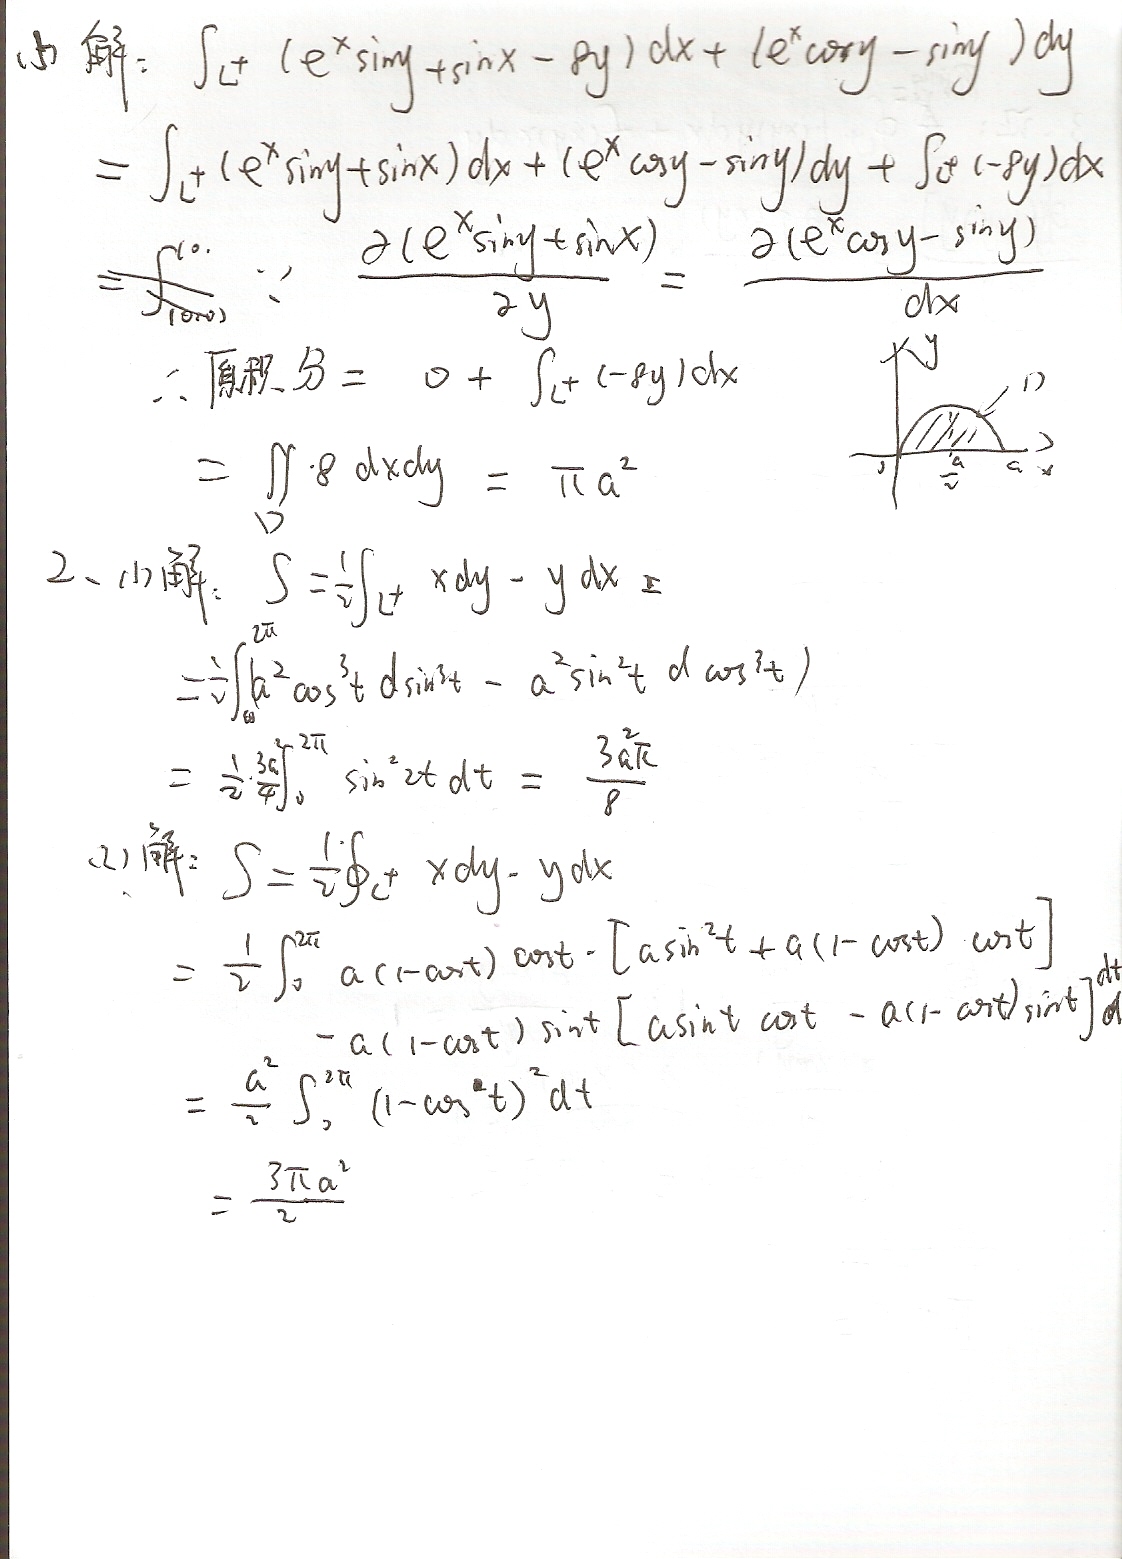 (4) 解: ∫L+ (e^x siny + sinx - 8y) dx + (e^x cosy - siny) dy
= ∫L+ (e^x siny + sinx) dx + (e^x cosy - siny) dy + ∫L+ (-8y) dx
∵ ∂(e^x siny + sinx)/∂y = ∂(e^x cosy - siny)/dx
∴ 原积分 = 0 + ∫L+ (-8y) dx
y
D
= ∬D 8 dxdy = πa²
a/2 a x
2、(1) 解: S = 1/2 ∫L+ xdy - ydx =
= 1/2 ∫0^2π (a² cos³t dsin³t - a² sin²t d cos³t)
= 1/2 · 3a²/4 ∫0^2π sin²2t dt = 3a²π/8
(2) 解: S = 1/2 ∮L+ xdy - ydx
= 1/2 ∫0^2π a(1-cost) cost · [a sin²t + a(1-cost) cost]
- a(1-cost) sint [a sint cost - a(1-cost) sint] dt
= a²/2 ∫0^2π (1-cos t)² dt
= 3πa²/2